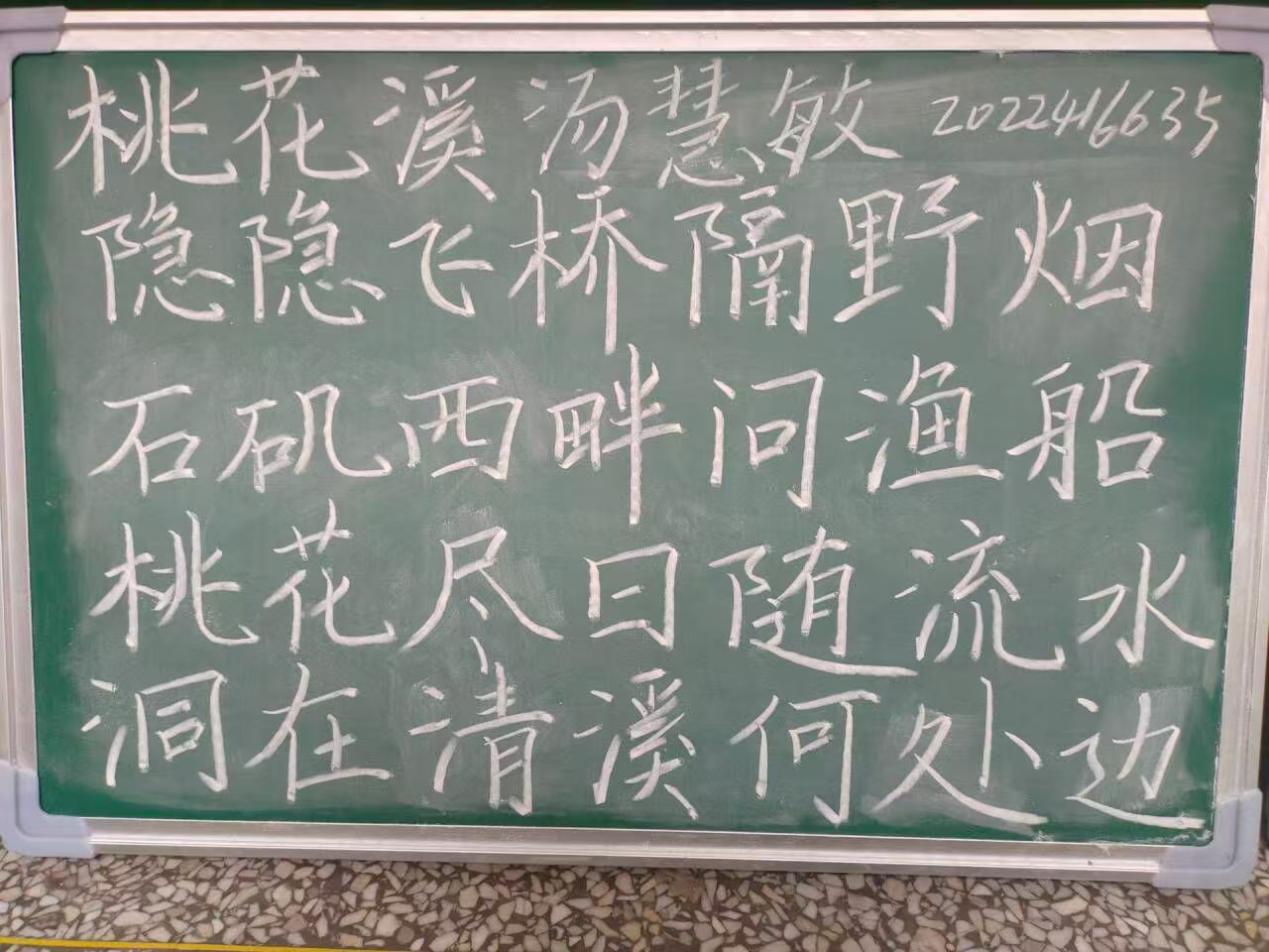 桃花溪 汤慧敏 2022416635
隐隐飞桥隔野烟
石矶西畔问渔船
桃花尽日随流水
洞在清溪何处边